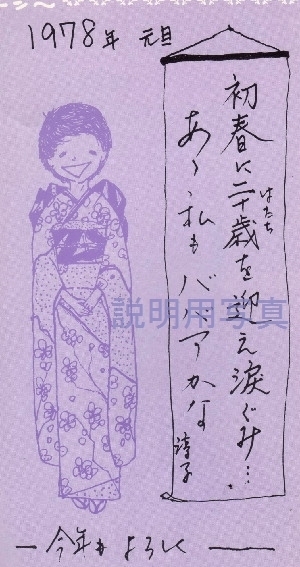 1978年 元旦
初春に二十歳を迎え涙ぐみ…
はたち
あゝ私もババアかな
淳子
説明用写真
今年もよろしく